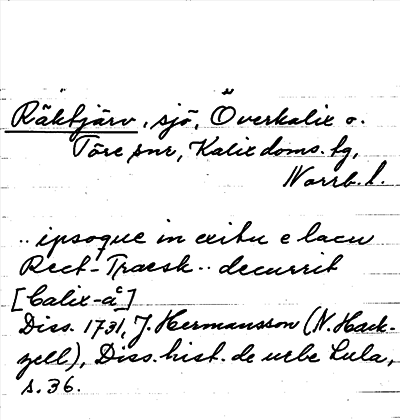 Räktjärv, sjö, Överkalix o.
Töre snr, Kalix doms. fg,
Norrb. l.
.. ipsoque in exitu e lacu
Rect-Traesk .. decurrit
[Calix-å]
Diss. 1731, J. Hermansson (N. Hack-
zell), Diss. hist. de urbe Lula,
s. 36.